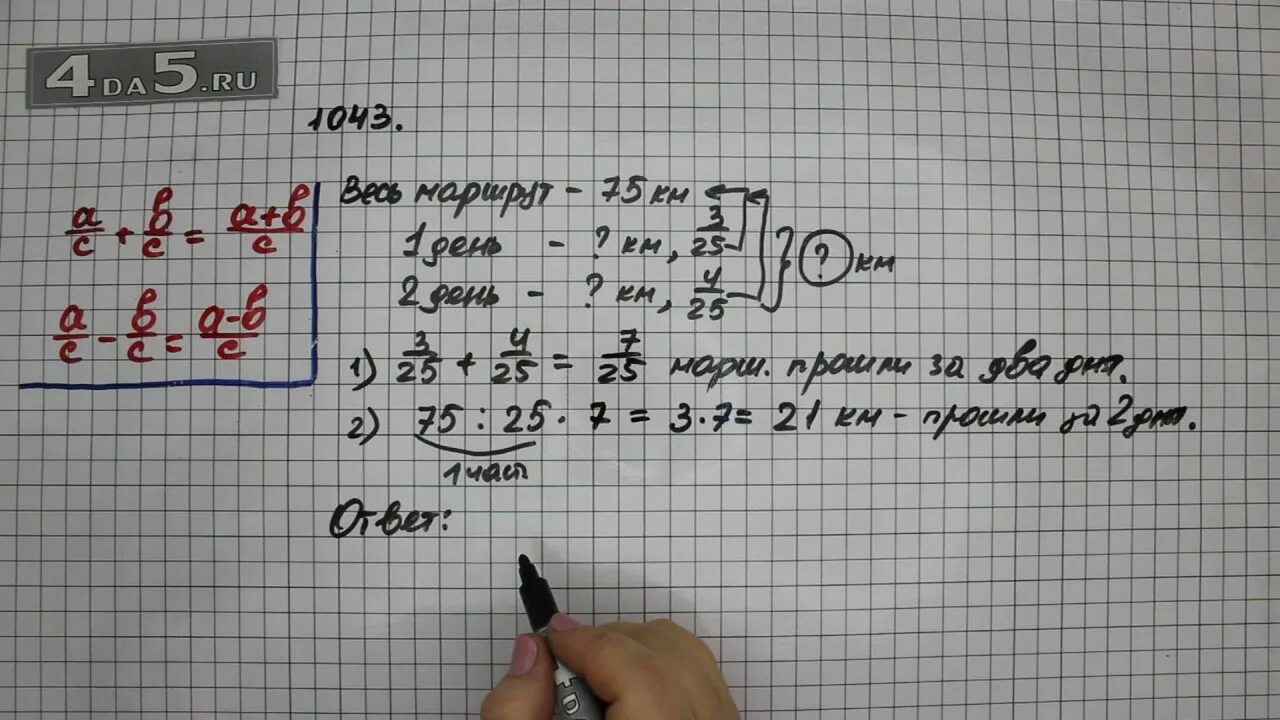 4DA5.RU
1043.
a/c + b/c = a+b/c
a/c - b/c = a-b/c
Весь маршрут - 75 км
1 день - ? км, 3/25
2 день - ? км, 4/25
? км
1) 3/25 + 4/25 = 7/25 марш. прошли за два дня.
2) 75 : 25 · 7 = 3·7 = 21 км - прошли за 2 дня.
1 част
Ответ: